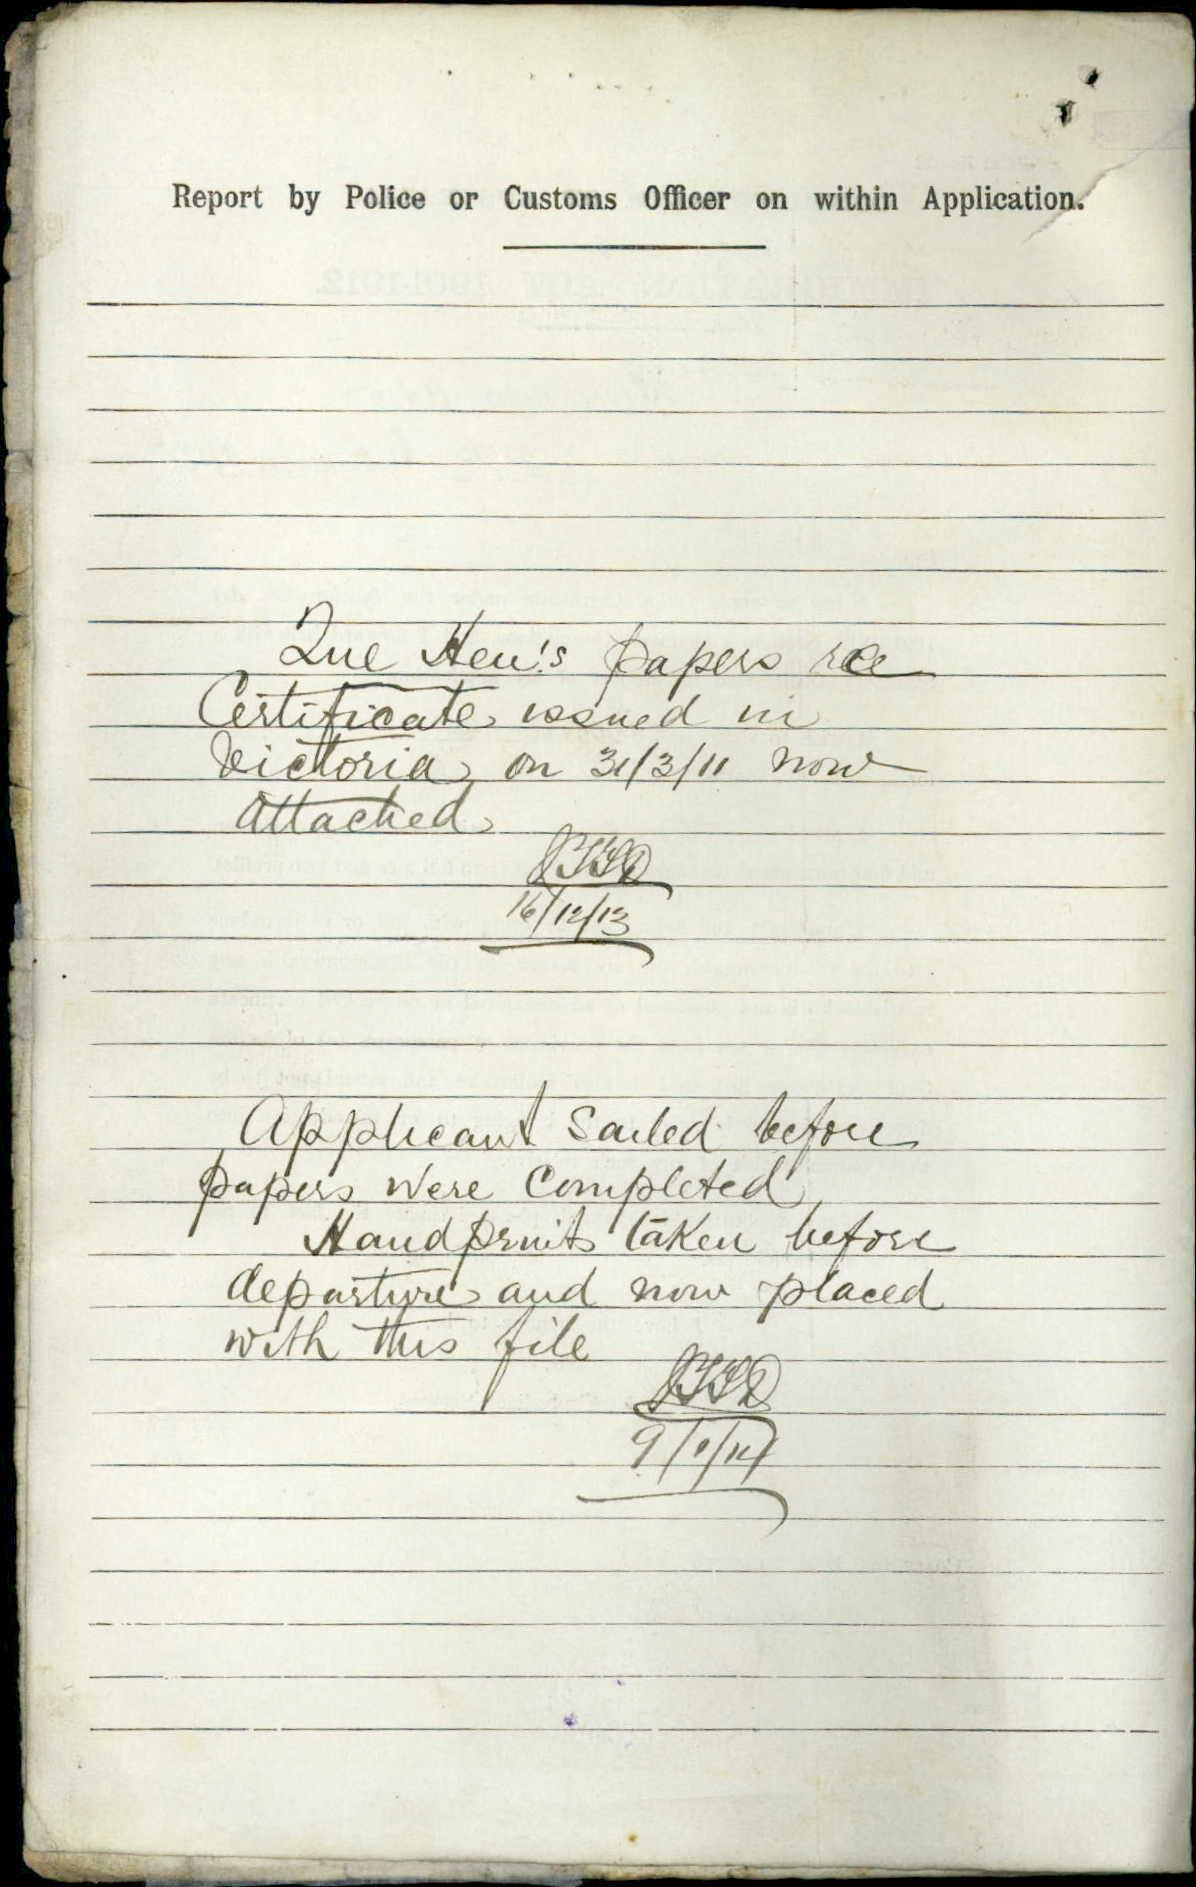 Report by Police or Customs Officer on within Application.
Que Hen's papers re
Certificate issued in
Victoria on 31/3/11 now
attached
16/12/13
Applicant Sailed before
papers were Completed
Handprints taken before
departure and now placed
with this file
9/1/14